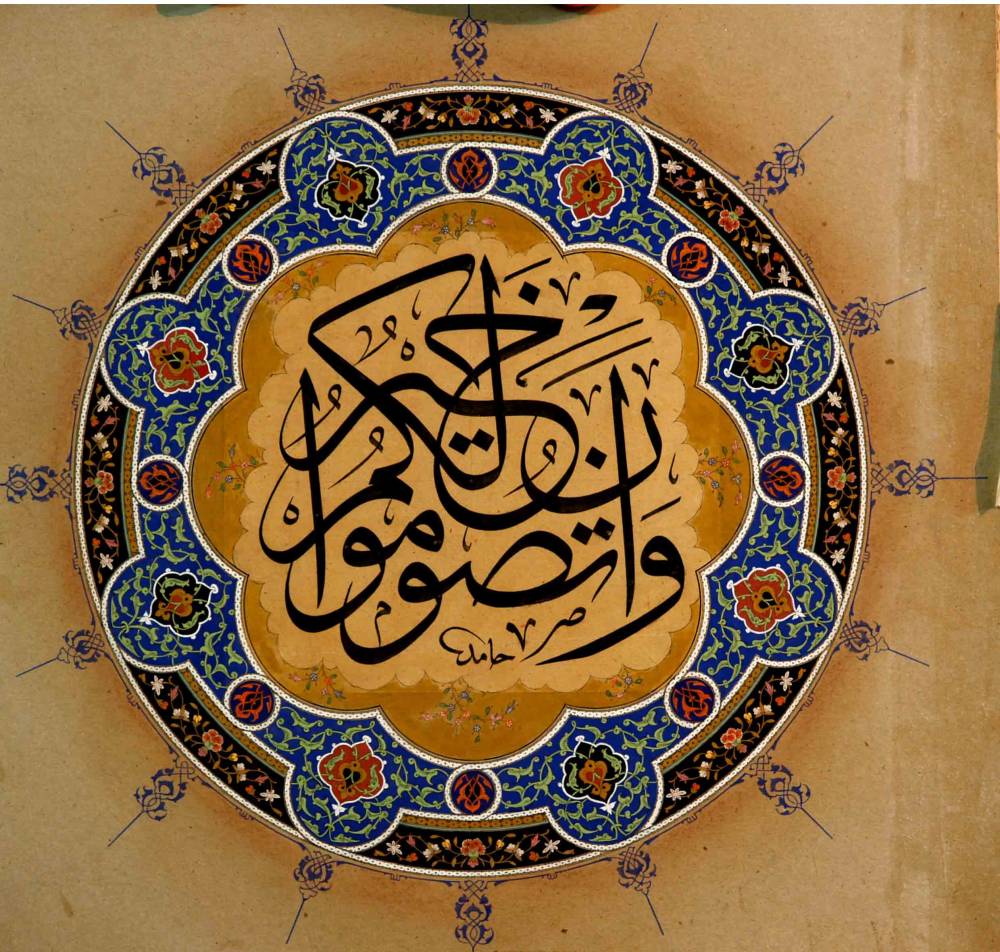 وان تصوموا خير لكم
حامد